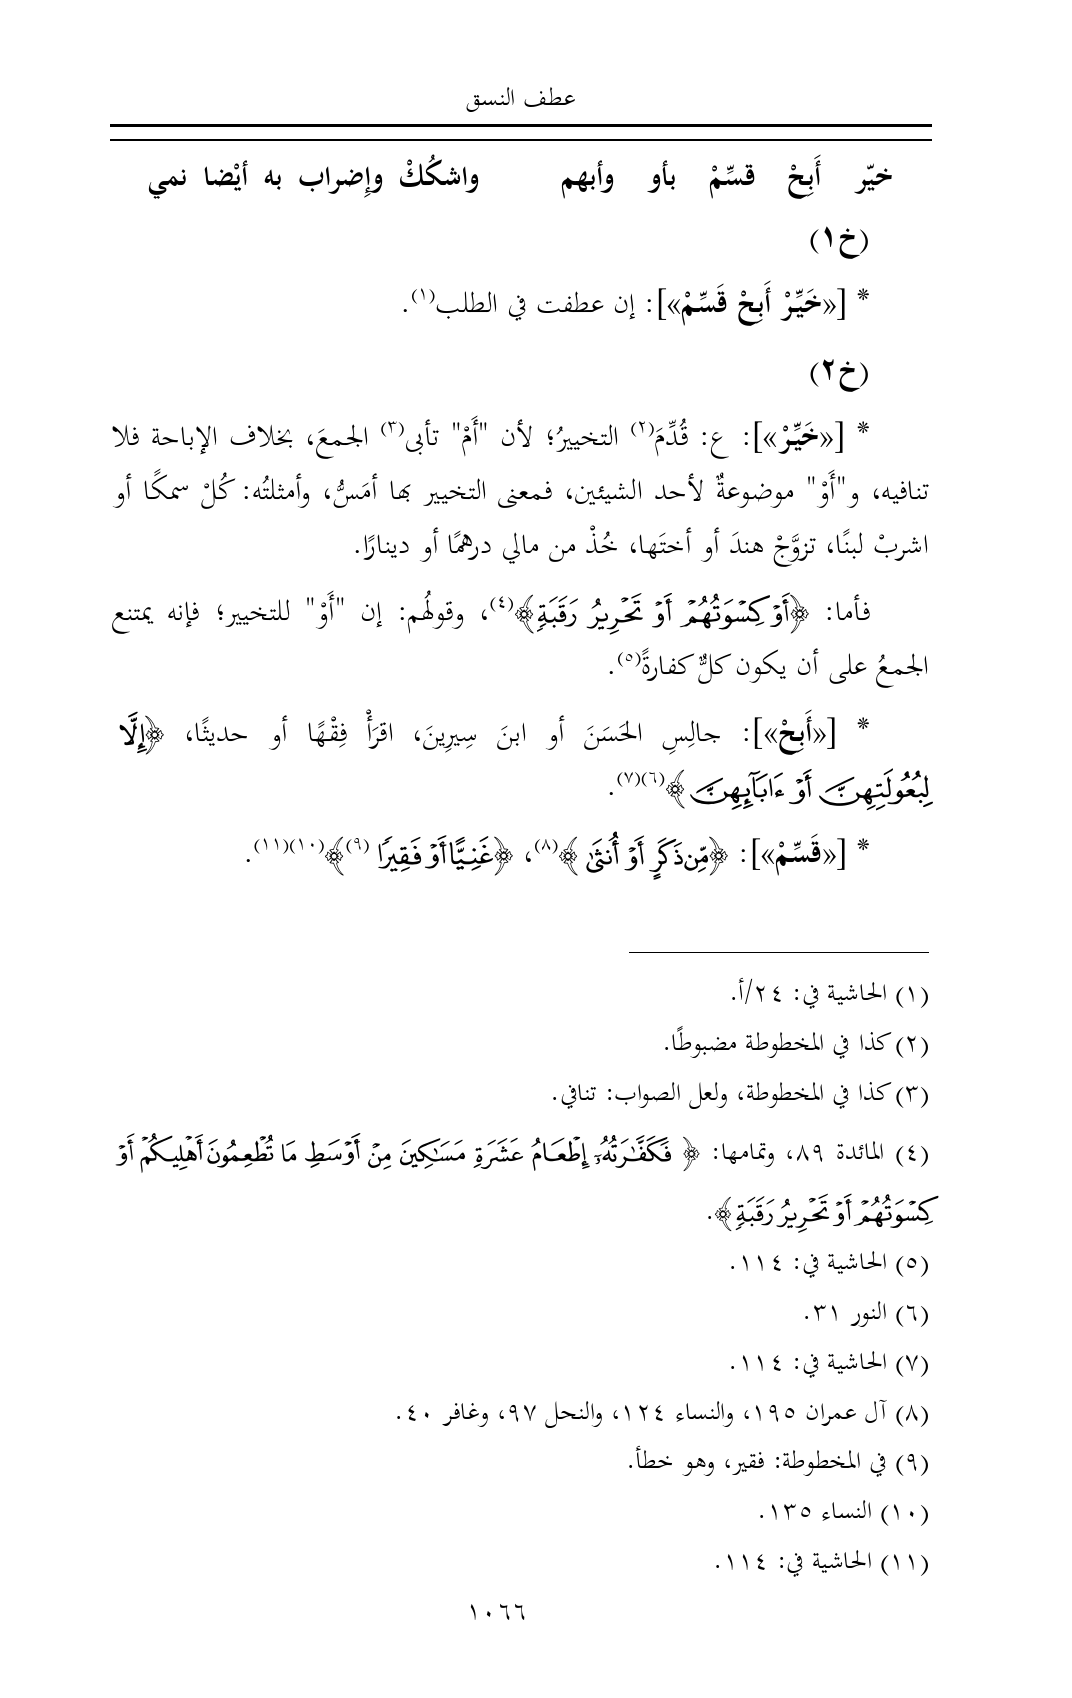 عطف النسق
خيّر أَبِحْ قسِّمْ بأو وأبهم واشكُكْ وإِضراب به أيْضا نمي
(خ١)
* [«خَيِّرْ أَبِحْ قَسِّمْ»]: إن عطفت في الطلب(١).
(خ٢)
* [«خَيِّرْ»]: ع: قُدِّمَ(٢) التخييرُ؛ لأن "أَمْ" تأبى(٣) الجمعَ، بخلاف الإباحة فلا
تنافيه، و"أَوْ" موضوعةٌ لأحد الشيئين، فمعنى التخيير بها أمَسُّ، وأمثلتُه: كُلْ سمكًا أو
اشربْ لبنًا، تزوَّجْ هندَ أو أختَها، خُذْ من مالي درهمًا أو دينارًا.
فأما: ﴿أَوْ كِسْوَتُهُمْ أَوْ تَحْرِيرُ رَقَبَةٍ﴾(٤)، وقولُهم: إن "أَوْ" للتخيير؛ فإنه يمتنع
الجمعُ على أن يكون كلٌّ كفارةً(٥).
* [«أَبِحْ»]: جالِسِ الحَسَنَ أو ابنَ سِيرِينَ، اقرَأْ فِقْهًا أو حديثًا، ﴿إِلَّا
لِبُعُولَتِهِنَّ أَوْ ءَابَآئِهِنَّ﴾(٦)(٧).
* [«قَسِّمْ»]: ﴿مِّن ذَكَرٍ أَوْ أُنثَىٰ﴾(٨)، ﴿غَنِيًّا أَوْ فَقِيرًا (٩)﴾(١٠)(١١).
(١) الحاشية في: ٢٤/أ.
(٢) كذا في المخطوطة مضبوطًا.
(٣) كذا في المخطوطة، ولعل الصواب: تنافي.
(٤) المائدة ٨٩، وتمامها: ﴿فَكَفَّـٰرَتُهُۥٓ إِطْعَامُ عَشَرَةِ مَسَـٰكِينَ مِنْ أَوْسَطِ مَا تُطْعِمُونَ أَهْلِيكُمْ أَوْ
كِسْوَتُهُمْ أَوْ تَحْرِيرُ رَقَبَةٍ﴾.
(٥) الحاشية في: ١١٤.
(٦) النور ٣١.
(٧) الحاشية في: ١١٤.
(٨) آل عمران ١٩٥، والنساء ١٢٤، والنحل ٩٧، وغافر ٤٠.
(٩) في المخطوطة: فقير، وهو خطأ.
(١٠) النساء ١٣٥.
(١١) الحاشية في: ١١٤.
١٠٦٦